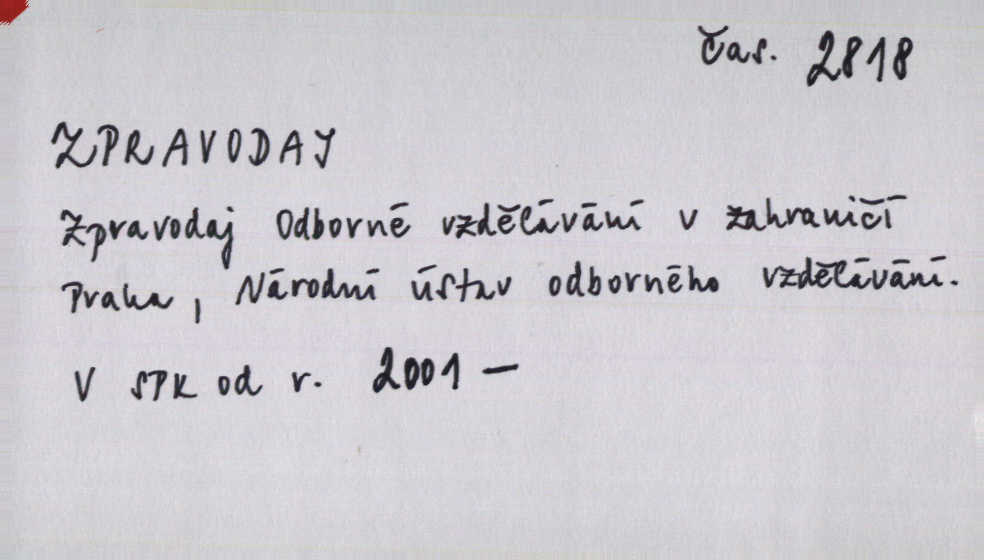 Čas. 2818
ZPRAVODAJ
Zpravodaj Odborné vzdělávání v zahraničí
Praha, Národní ústav odborného vzdělávání.
V SPK od r. 2001 —